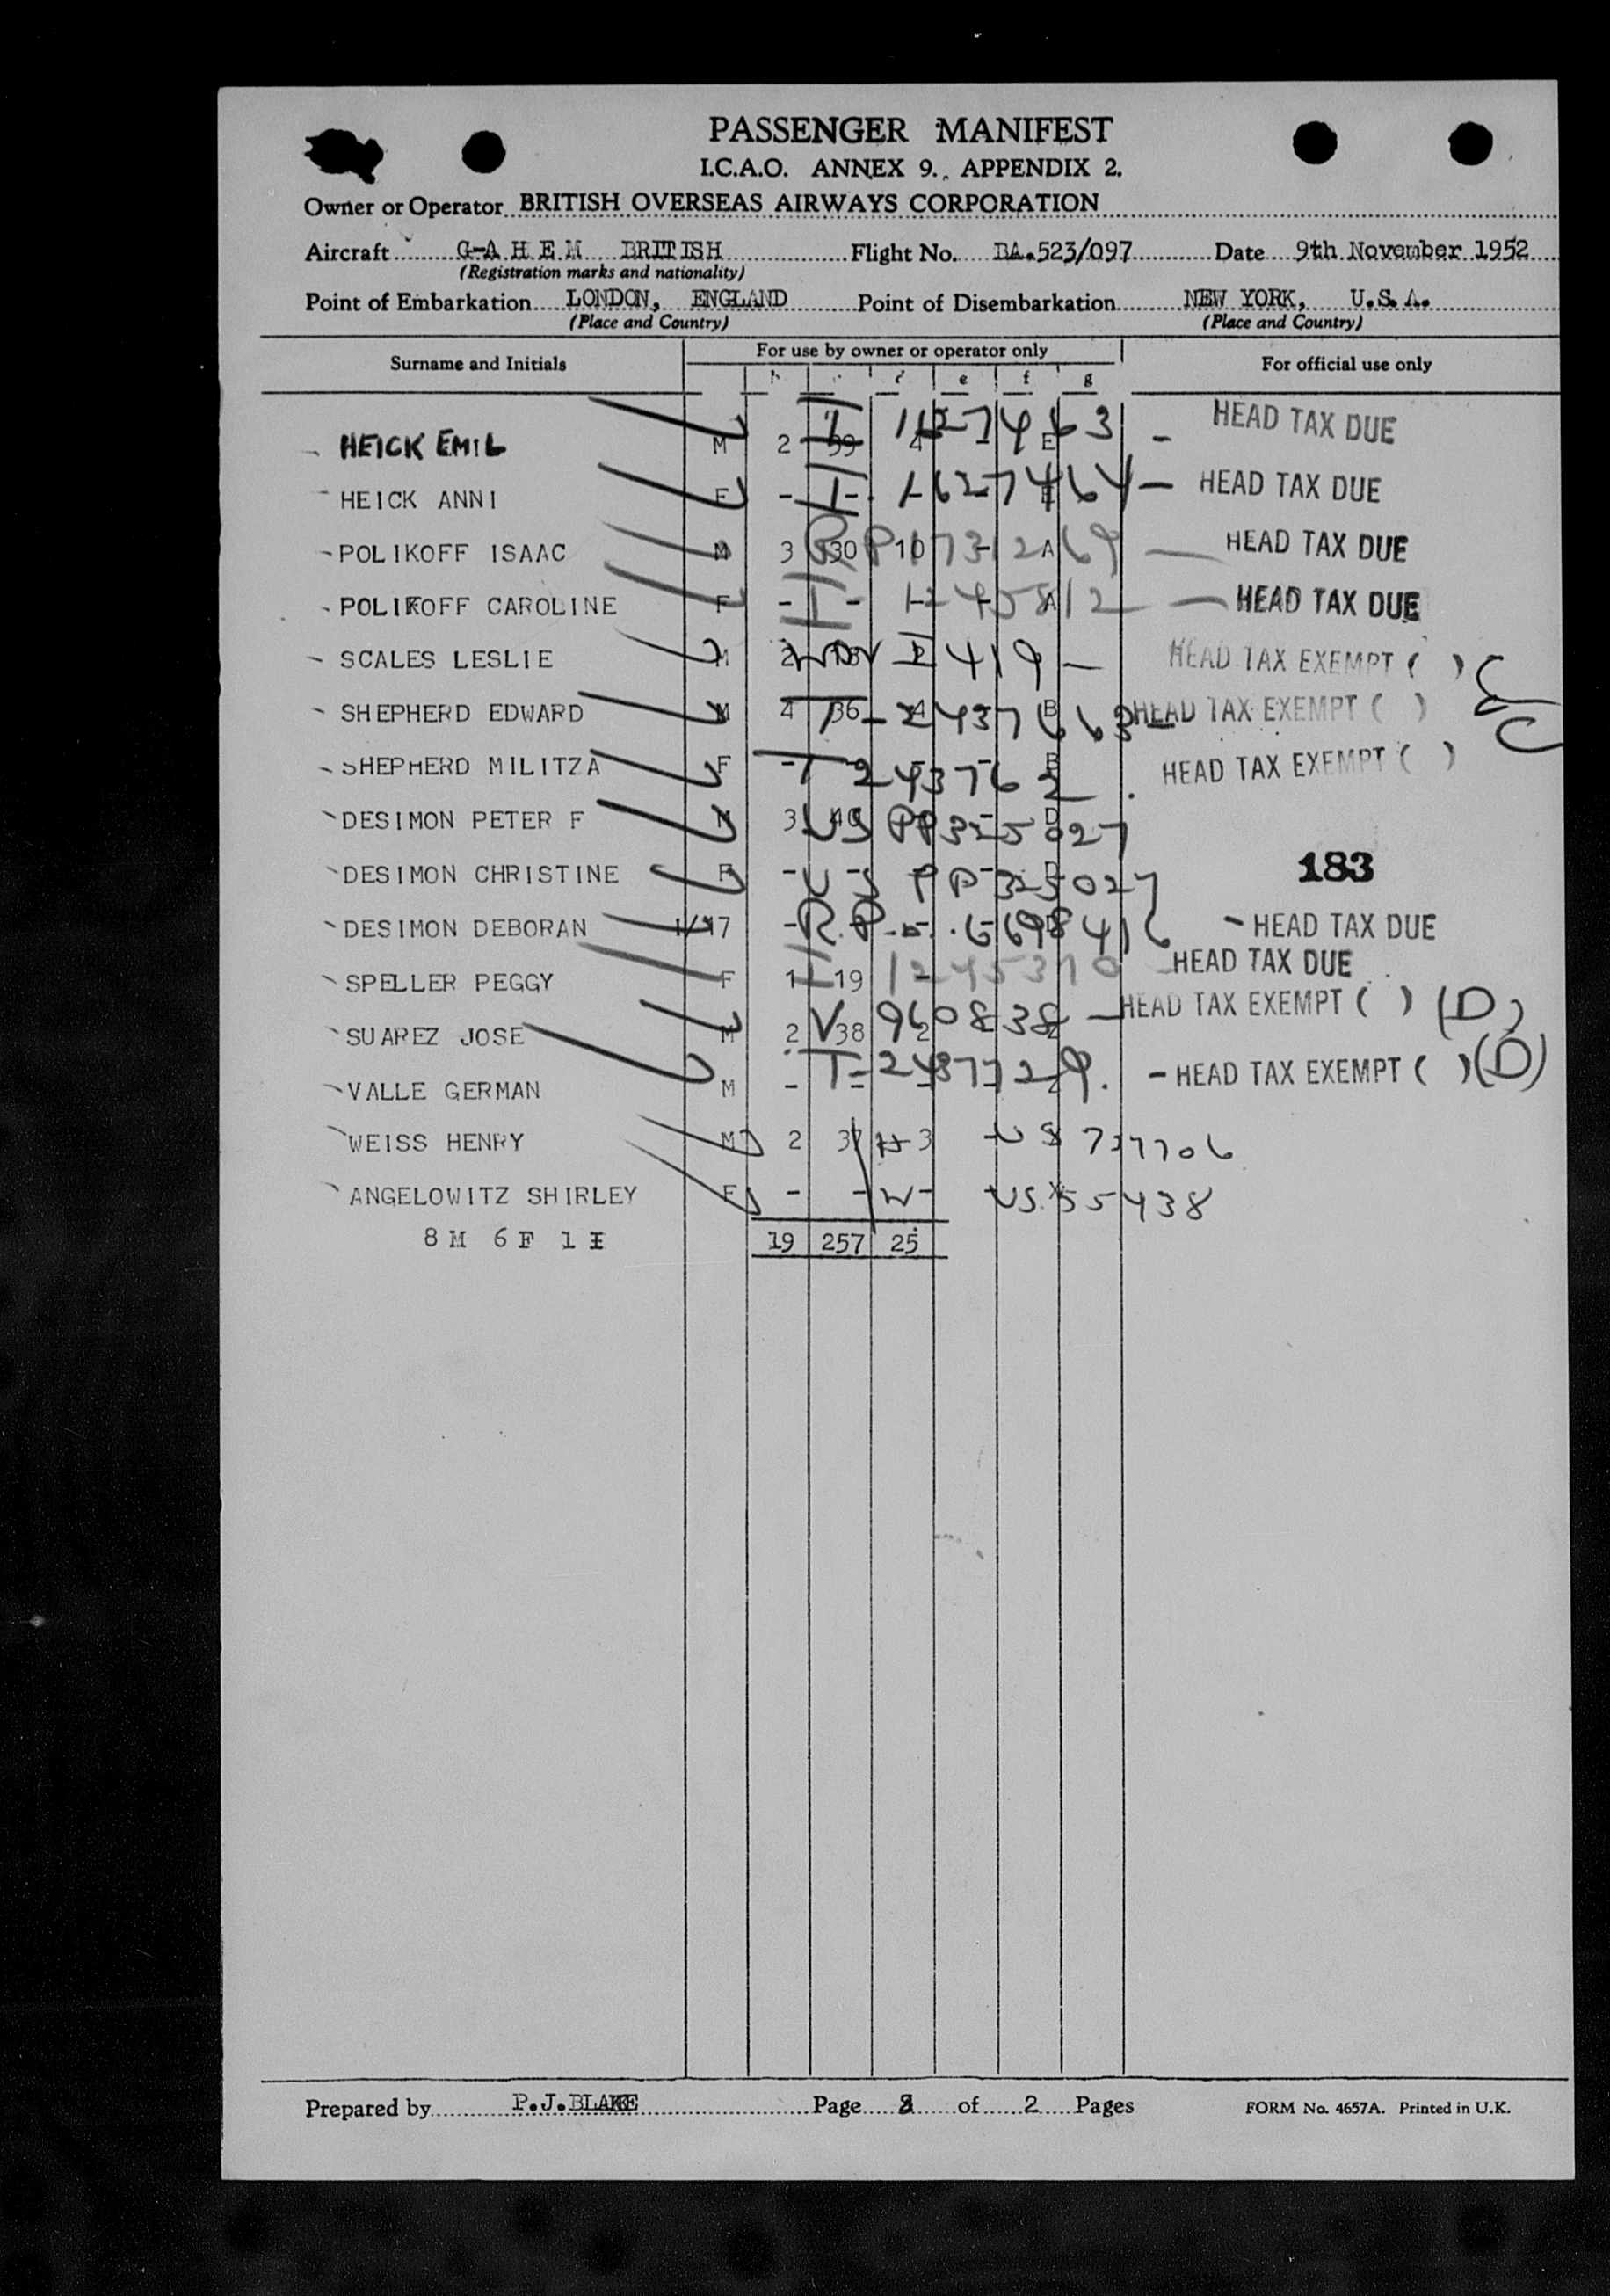 PASSENGER MANIFEST
I.C.A.O. ANNEX 9., APPENDIX 2.
Owner or Operator BRITISH OVERSEAS AIRWAYS CORPORATION
Aircraft G-A H E M BRITISH Flight No. BA.523/097 Date 9th November 1952
(Registration marks and nationality)
Point of Embarkation LONDON, ENGLAND Point of Disembarkation NEW YORK, U.S.A.
(Place and Country) (Place and Country)
For use by owner or operator only
Surname and Initials For official use only
d e f g
HEICK EMIL M 2 39 4 - E HEAD TAX DUE
HEICK ANNI F - HEAD TAX DUE
POLIKOFF ISAAC M 3 30 10 - A HEAD TAX DUE
POLIKOFF CAROLINE F - - - - A HEAD TAX DUE
SCALES LESLIE M 2 419 - HEAD TAX EXEMPT ( )
SHEPHERD EDWARD M 4 36 B HEAD TAX EXEMPT ( )
SHEPHERD MILITZA F - HEAD TAX EXEMPT ( )
DESIMON PETER F M 3 US PP 325027
DESIMON CHRISTINE F - US PP 325027
183
DESIMON DEBORAN R.P. - HEAD TAX DUE
SPELLER PEGGY F 1 19 HEAD TAX DUE
SUAREZ JOSE M 2 V 38 960838 - HEAD TAX EXEMPT ( ) (D)
VALLE GERMAN M - T-2437729. - HEAD TAX EXEMPT ( ) (D)
WEISS HENRY M 2 37 3 US 737706
ANGELOWITZ SHIRLEY F - - - US. 55438
8 M 6 F 1 I 19 257 25
Prepared by P.J.BLAKE Page 2 of 2 Pages FORM No. 4657A. Printed in U.K.